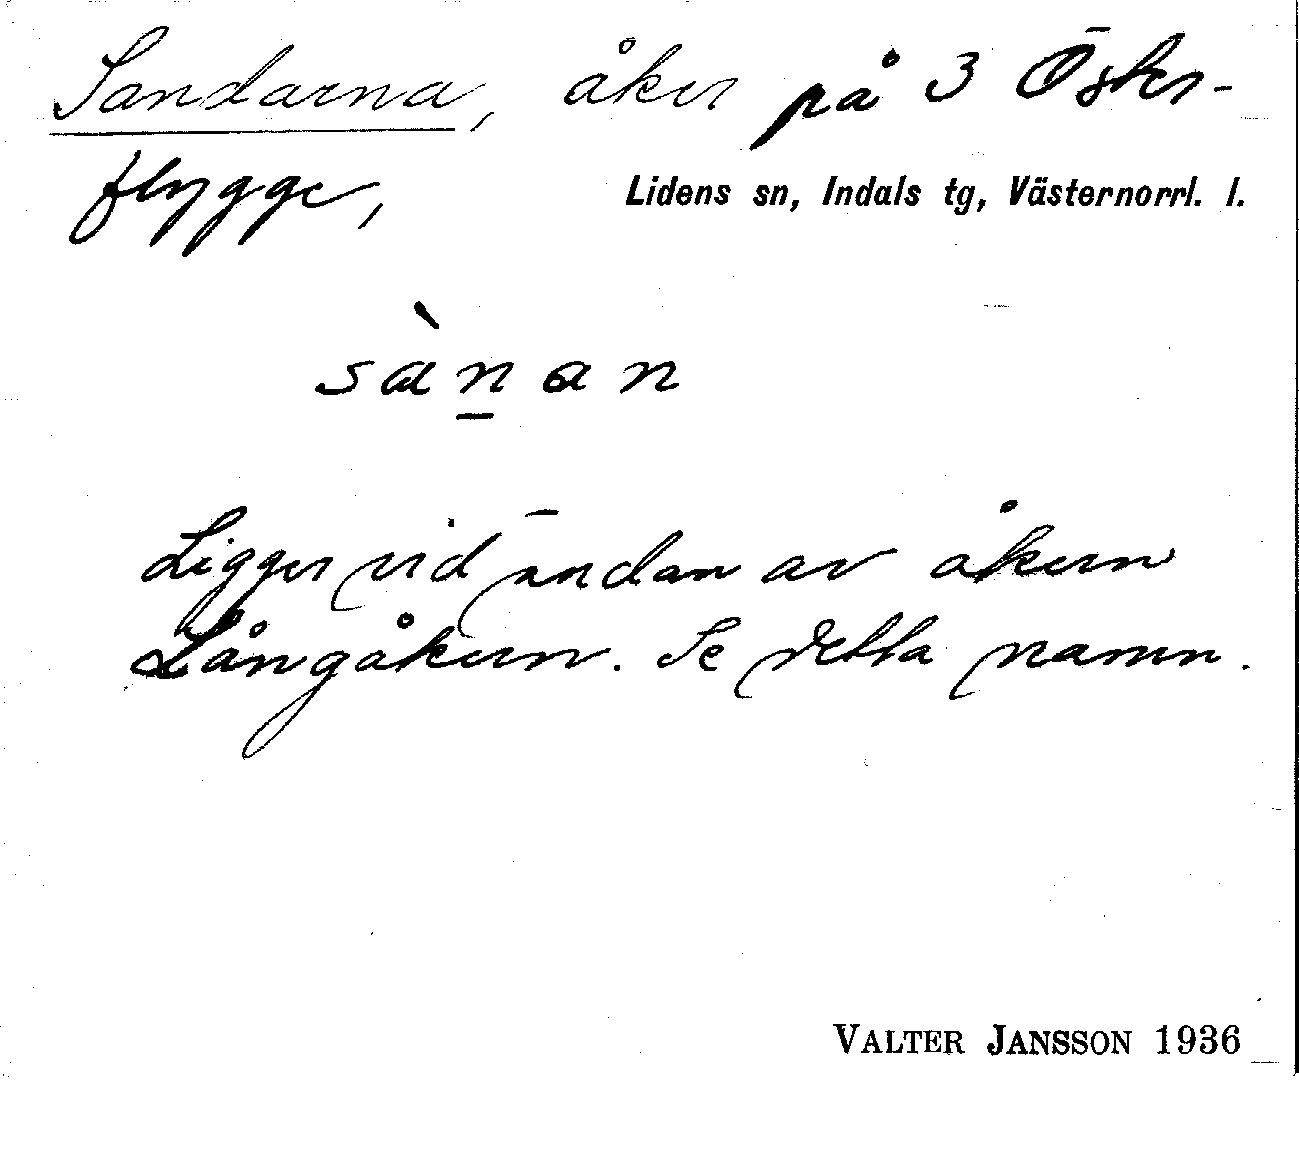 Sandarna, åker på 3 Öster-
flygge,
Lidens sn, Indals tg, Västernorrl. l.
sàn̲an
Ligger vid ändan av åkern
Långåkern. Se detta namn.
VALTER JANSSON 1936